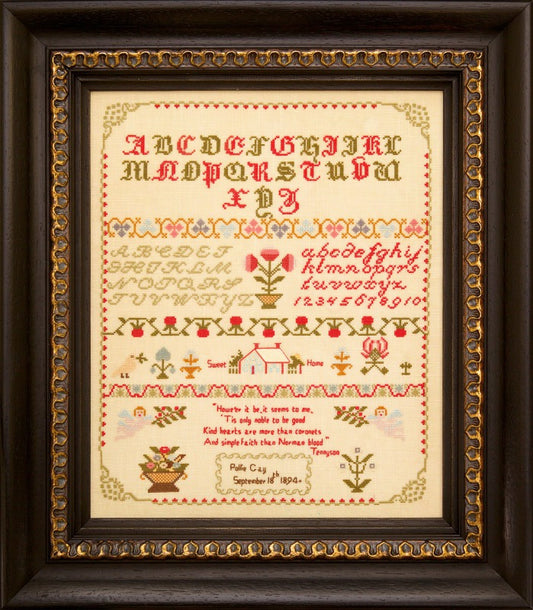 ABCDEFGHIJKL
MNOPQRSTUVW
XYZ
ABCDEF
GHIKLM
NOPQRS
TUVWXYZ
abcdefghij
klmnopqrs
tuvwxyz
12345678910
Sweet Home
"However it be, it seems to me,
'Tis only noble to be good
Kind hearts are more than coronets
And simple faith than Norman blood"
Tennyson
Polly Cay
September 18th 1894